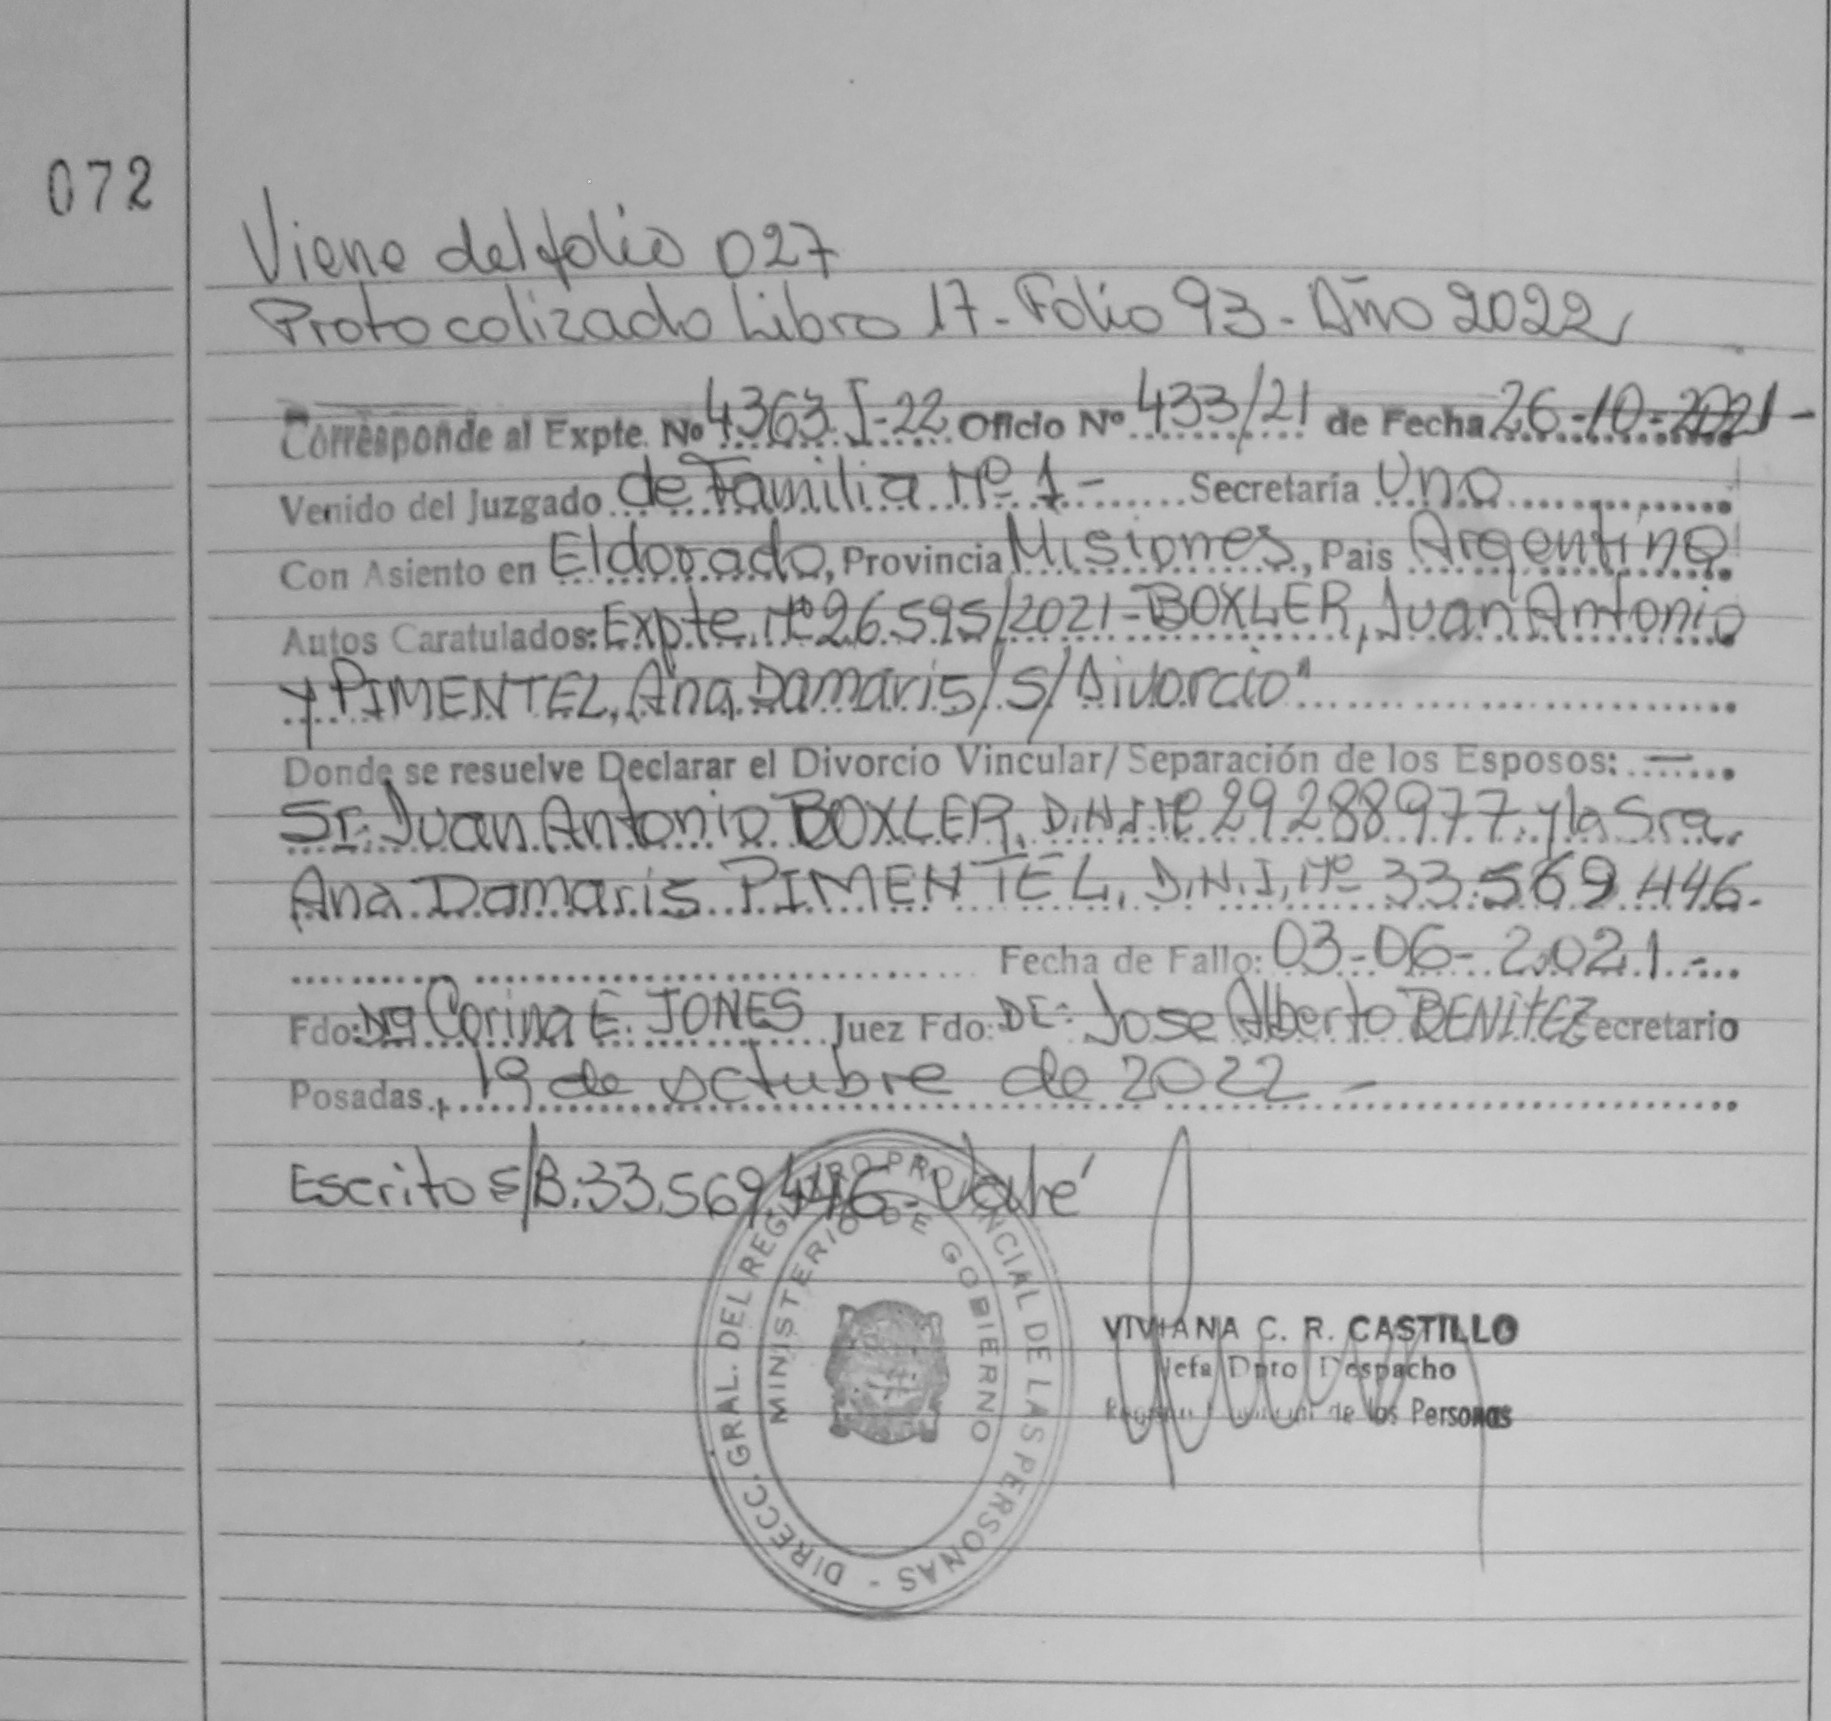 072
Viene del folio 027
Protocolizado Libro 17 - Folio 93 - Año 2022
Corresponde al Expte. Nº 4363 I-22 Oficio Nº 433/21 de Fecha 26-10-2021-
Venido del Juzgado de Familia Nº 1- Secretaría Uno
Con Asiento en Eldorado, Provincia Misiones, Pais Argentina
Autos Caratulados: Expte. Nº 26.595/2021-BOXLER, Juan Antonio
y PIMENTEL, Ana Damaris/s/Divorcio"
Donde se resuelve Declarar el Divorcio Vincular/Separación de los Esposos: —
Sr. Juan Antonio BOXLER, D.N.I. Nº 29288977 y la Sra.
Ana Damaris PIMENTEL, D.N.I. Nº 33.569.446.
Fecha de Fallo: 03-06-2.021-
Fdo: Dra Corina E. JONES Juez Fdo: Dr: Jose Alberto BENITEZ ecretario
Posadas, 19 de octubre de 2022 -
Escrito s/B: 33.569.446- Vale
DIRECC. GRAL. DEL REGISTRO PROVINCIAL DE LAS PERSONAS -
MINISTERIO DE GOBIERNO
VIVIANA C. R. CASTILLO
Jefa Dpto Despacho
de los Personas